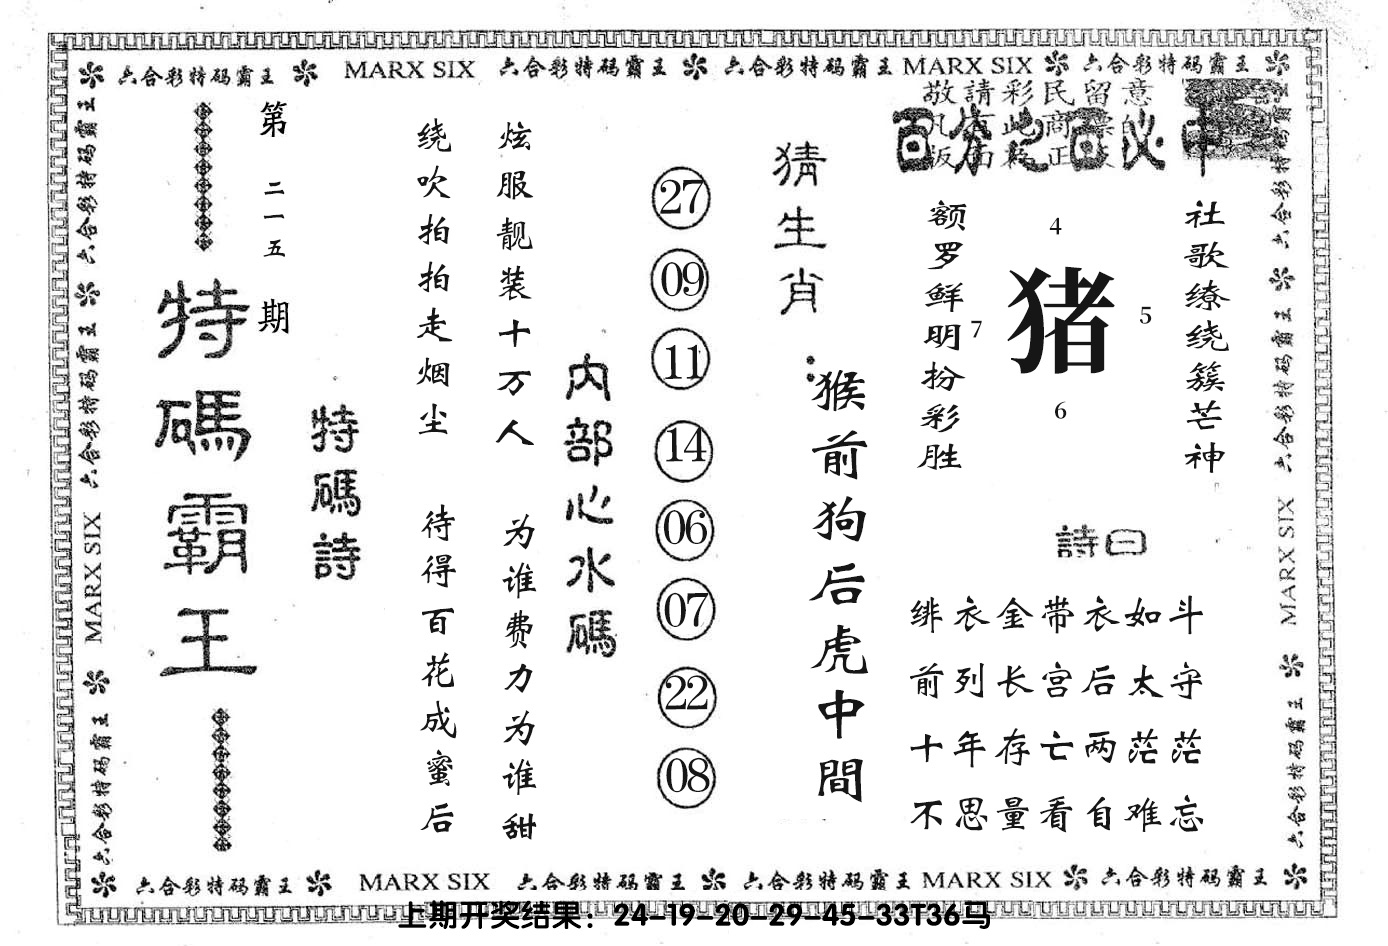 六合彩特码霸王 MARX SIX 六合彩特码霸王 六合彩特码霸王 MARX SIX 六合彩特码霸王
敬請彩民留意
百分之百必中
社歌缭绕簇芒神
4
猪
5
7
6
额罗鲜明扮彩胜
詩曰
绯衣金带衣如斗
前列长宫后太守
十年存亡两茫茫
不思量看自难忘
猜生肖:
猴前狗后虎中間
27
09
11
14
06
07
22
08
内部心水碼
炫服靓装十万人
为谁费力为谁甜
绕吹拍拍走烟尘
待得百花成蜜后
特碼詩
第二一五期
特碼霸王
六合彩特码霸王 六合彩特码霸王 MARX SIX 六合彩特码霸王
六合彩特码霸王 六合彩特码霸王 MARX SIX 六合彩特码霸王
六合彩特码霸王 MARX SIX 六合彩特码霸王 六合彩特码霸王 MARX SIX 六合彩特码霸王
上期开奖结果：24-19-20-29-45-33T36马